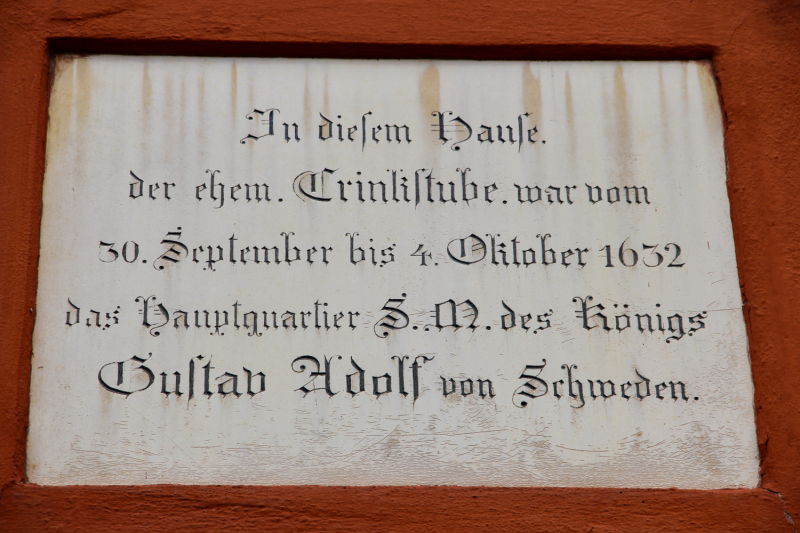 In diesem Hause.
der ehem. Trinkstube. war vom
30. September bis 4. Oktober 1632
das Hauptquartier S. M. des Königs
Gustav Adolf von Schweden.